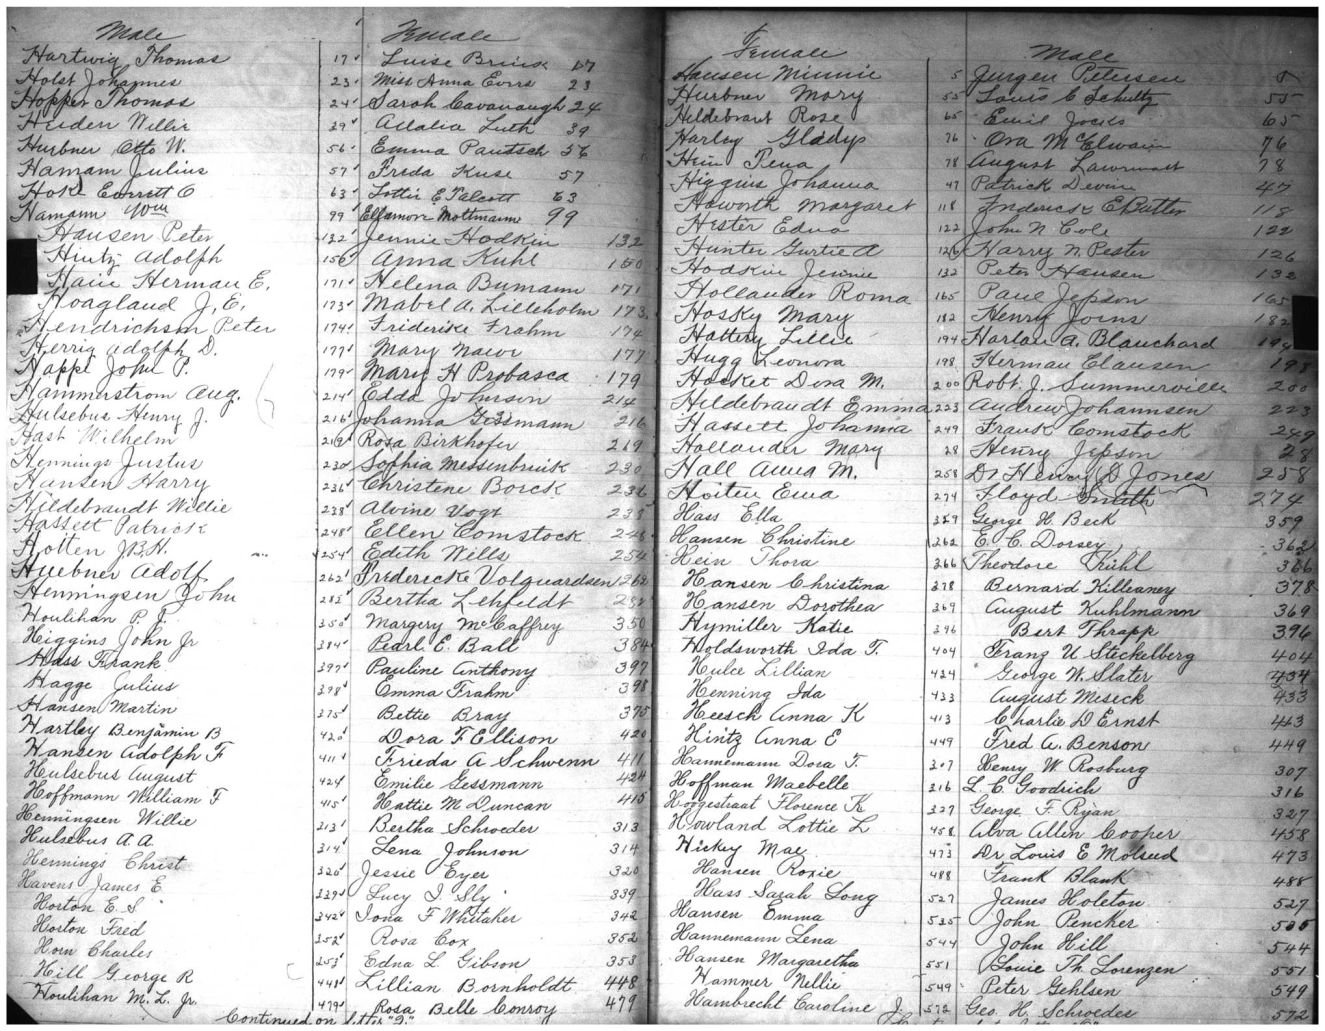 Male Female
Hartwig Thomas 17 Luise Brink 17
Holst Johannes 23 Miss Anna Evers 23
Hopper Thomas 24 Sarah Cavanaugh 24
Heiden Willie 39 Allalia Luth 39
Hurbner Otto W. 56 Emma Pautsch 56
Hamam Julius 57 Freda Kuse 57
Hoke Everett O 63 Lottie E Talcott 63
Hamann Wm 99 Mottmann 99
Hansen Peter 132 Jennie Hodkin 132
Hintz Adolph 150 Anna Kuhl 150
Hain Herman E. 171 Helena Bumann 171
Hoagland J. E. 173 Mabel A. Lilleholm 173
Hendrickson Peter 174 Friderike Frahm 174
Herrig Adolph D. 177 Mary 177
Happe John P. 179 Mary H Probasca 179
Hammerstrom Aug. 214 Edda Johnson 214
Hulsebus Henry J. 216 Johanna Gissmann 216
Hast Wilhelm 219 Rosa Birkhofer 219
Hennings Justus 230 Sophia Messenbrink 230
Hansen Harry 236 Christene Borck 236
Hildebrandt Willie 238 Alvine Vogt 238
Hassett Patrick 248 Ellen Comstock 248
Hotten J.B.H. 254 Edith Wills 254
Huebner Adolf 262 Fredericke Volquardsen 262
Henningsen John 282 Bertha Lehfeldt 282
Houlihan P. J. 350 Margery McCaffrey 350
Higgins John Jr 384 Pearl E. Ball 384
Hass Frank 397 Pauline Anthony 397
Hagge Julius 398 Emma Frahm 398
Hansen Martin 375 Bettie Bray 375
Hartley Benjamin B 420 Dora F Ellison 420
Hansen Adolph F 411 Frieda A Schwenn 411
Hulsebus August 424 Emilie Gessmann 424
Hoffmann William F 415 Hattie M Duncan 415
Henningsen Willie 313 Bertha Schroeder 313
Hulsebus A A 314 Lena Johnson 314
Hennings Christ 320 Jessie Eyer 320
Havens James E 339 Lucy I Sly 339
Horton E. S 342 Iona F Whitaker 342
Horton Fred 352 Rosa Cox 352
Horn Charles 353 Edna L. Gibson 353
Hill George R 448 Lillian Bornholdt 448
Houlihan M. L. Jr. 479 Rosa Belle Conroy 479
Continued on letter "Q."
Female Male
Hansen Minnie 5 Jurgen Petersen 5
Hurbner Mary 55 Louis C Schultz 55
Hildebrant Rose 65 Emil Jocks 65
Harley Gladys 76 Ora McElwain 76
Hein Rena 78 August 78
Higgins Johanna 47 Patrick Devine 47
Haworth Margaret 118 Frederick E Butter 118
Hester Edna 122 John N. Cole 122
Hunter Gurtie A 126 Harry N. Pester 126
Hodkin Jennie 132 Peter Hansen 132
Hollander Roma 165 Paul Jepson 165
Hosky Mary 182 Henry Joens 182
Hattery Lillie 194 Harlan A. Blanchard 194
Hugg Leonora 198 Herman Clausen 198
Hocket Dora M. 200 Robt. J. Summerville 200
Hildebrandt Emma 223 Andrew Johannsen 223
Hassett Johanna 249 Frank Comstock 249
Hollander Mary 28 Henry Jepson 28
Hall Anna M. 258 Dr Henry D Jones 258
Hoiten Emma 274 Floyd Smith 274
Hass Ella 359 George H. Beck 359
Hansen Christine 362 E. C. Dorsey 362
Hein Thora 366 Theodore Kuhl 366
Hansen Christina 378 Bernard Killeaney 378
Hansen Dorothea 369 August Kuhlmann 369
Hymiller Katie 396 Bert Thrapp 396
Holdsworth Ida T. 404 Franz U Stickelberg 404
Hulce Lillian 434 George W. Slater 434
Henning Ida 433 August Meseck 433
Heesch Anna K 413 Charlie D Ernst 413
Hintz Anna E 449 Fred A. Benson 449
Hannemann Dora T. 307 Henry W. Rosburg 307
Hoffman Maebelle 316 L. C. Goodrich 316
Hoogestraat Florence K 327 George F. Ryan 327
Howland Lottie L 458 Alva Allen Cooper 458
Hickey Mae 473 Dr Louis E Molsud 473
Hansen Roxie 488 Frank Blank 488
Hass Sarah Long 527 James Holeton 527
Hansen Emma 535 John Pencker 535
Hannemann Lena 544 John Hill 544
Hansen Margaretha 551 Louie Th. Lorenzen 551
Hammer Nellie 549 Peter Gehlsen 549
Hambrecht Caroline J. 572 Geo. H. Schroeder 572